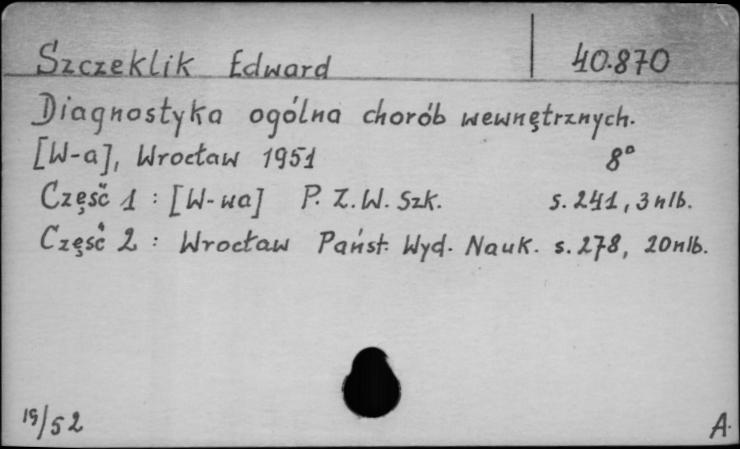 Szczeklik Edward 40.870
Diagnostyka ogólna chorób wewnętrznych.
[W-a], Wrocław 1951 8°
Część 1 : [W-wa] P. Z. W. Szk. s. 241, 3 nlb.
Część 2 : Wrocław Państ. Wyd. Nauk. s. 278, 20 nlb.
19/52 A.